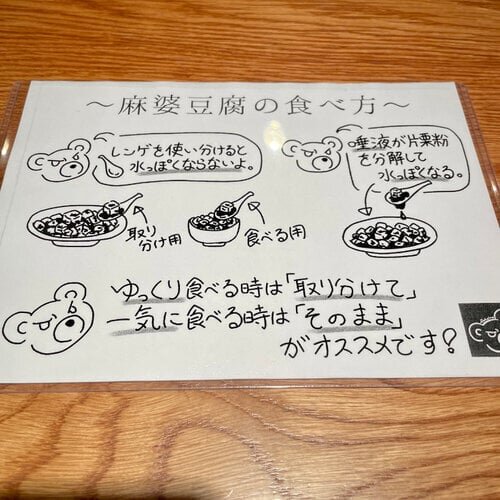 〜麻婆豆腐の食べ方〜
レンゲを使い分けると
水っぽくならないよ。
唾液が片栗粉
を分解して
水っぽくなる。
取り
分け用
食べる用
ゆっくり食べる時は「取り分けて」
一気に食べる時は「そのまま」
がオススメです?